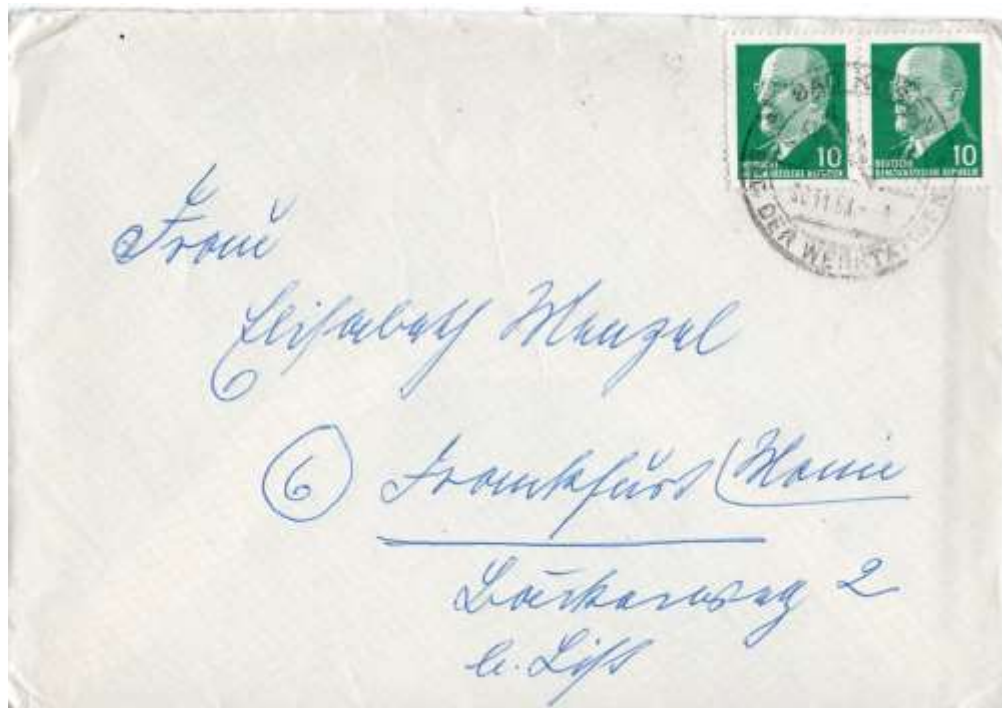 10 10
DEUTSCHE DEMOKRATISCHE REPUBLIK
DEUTSCHE DEMOKRATISCHE REPUBLIK
DER WERKTÄTIGEN
Frau
Elisabeth Menzel
6 Frankfurt (Main
Bäckerweg 2
b.